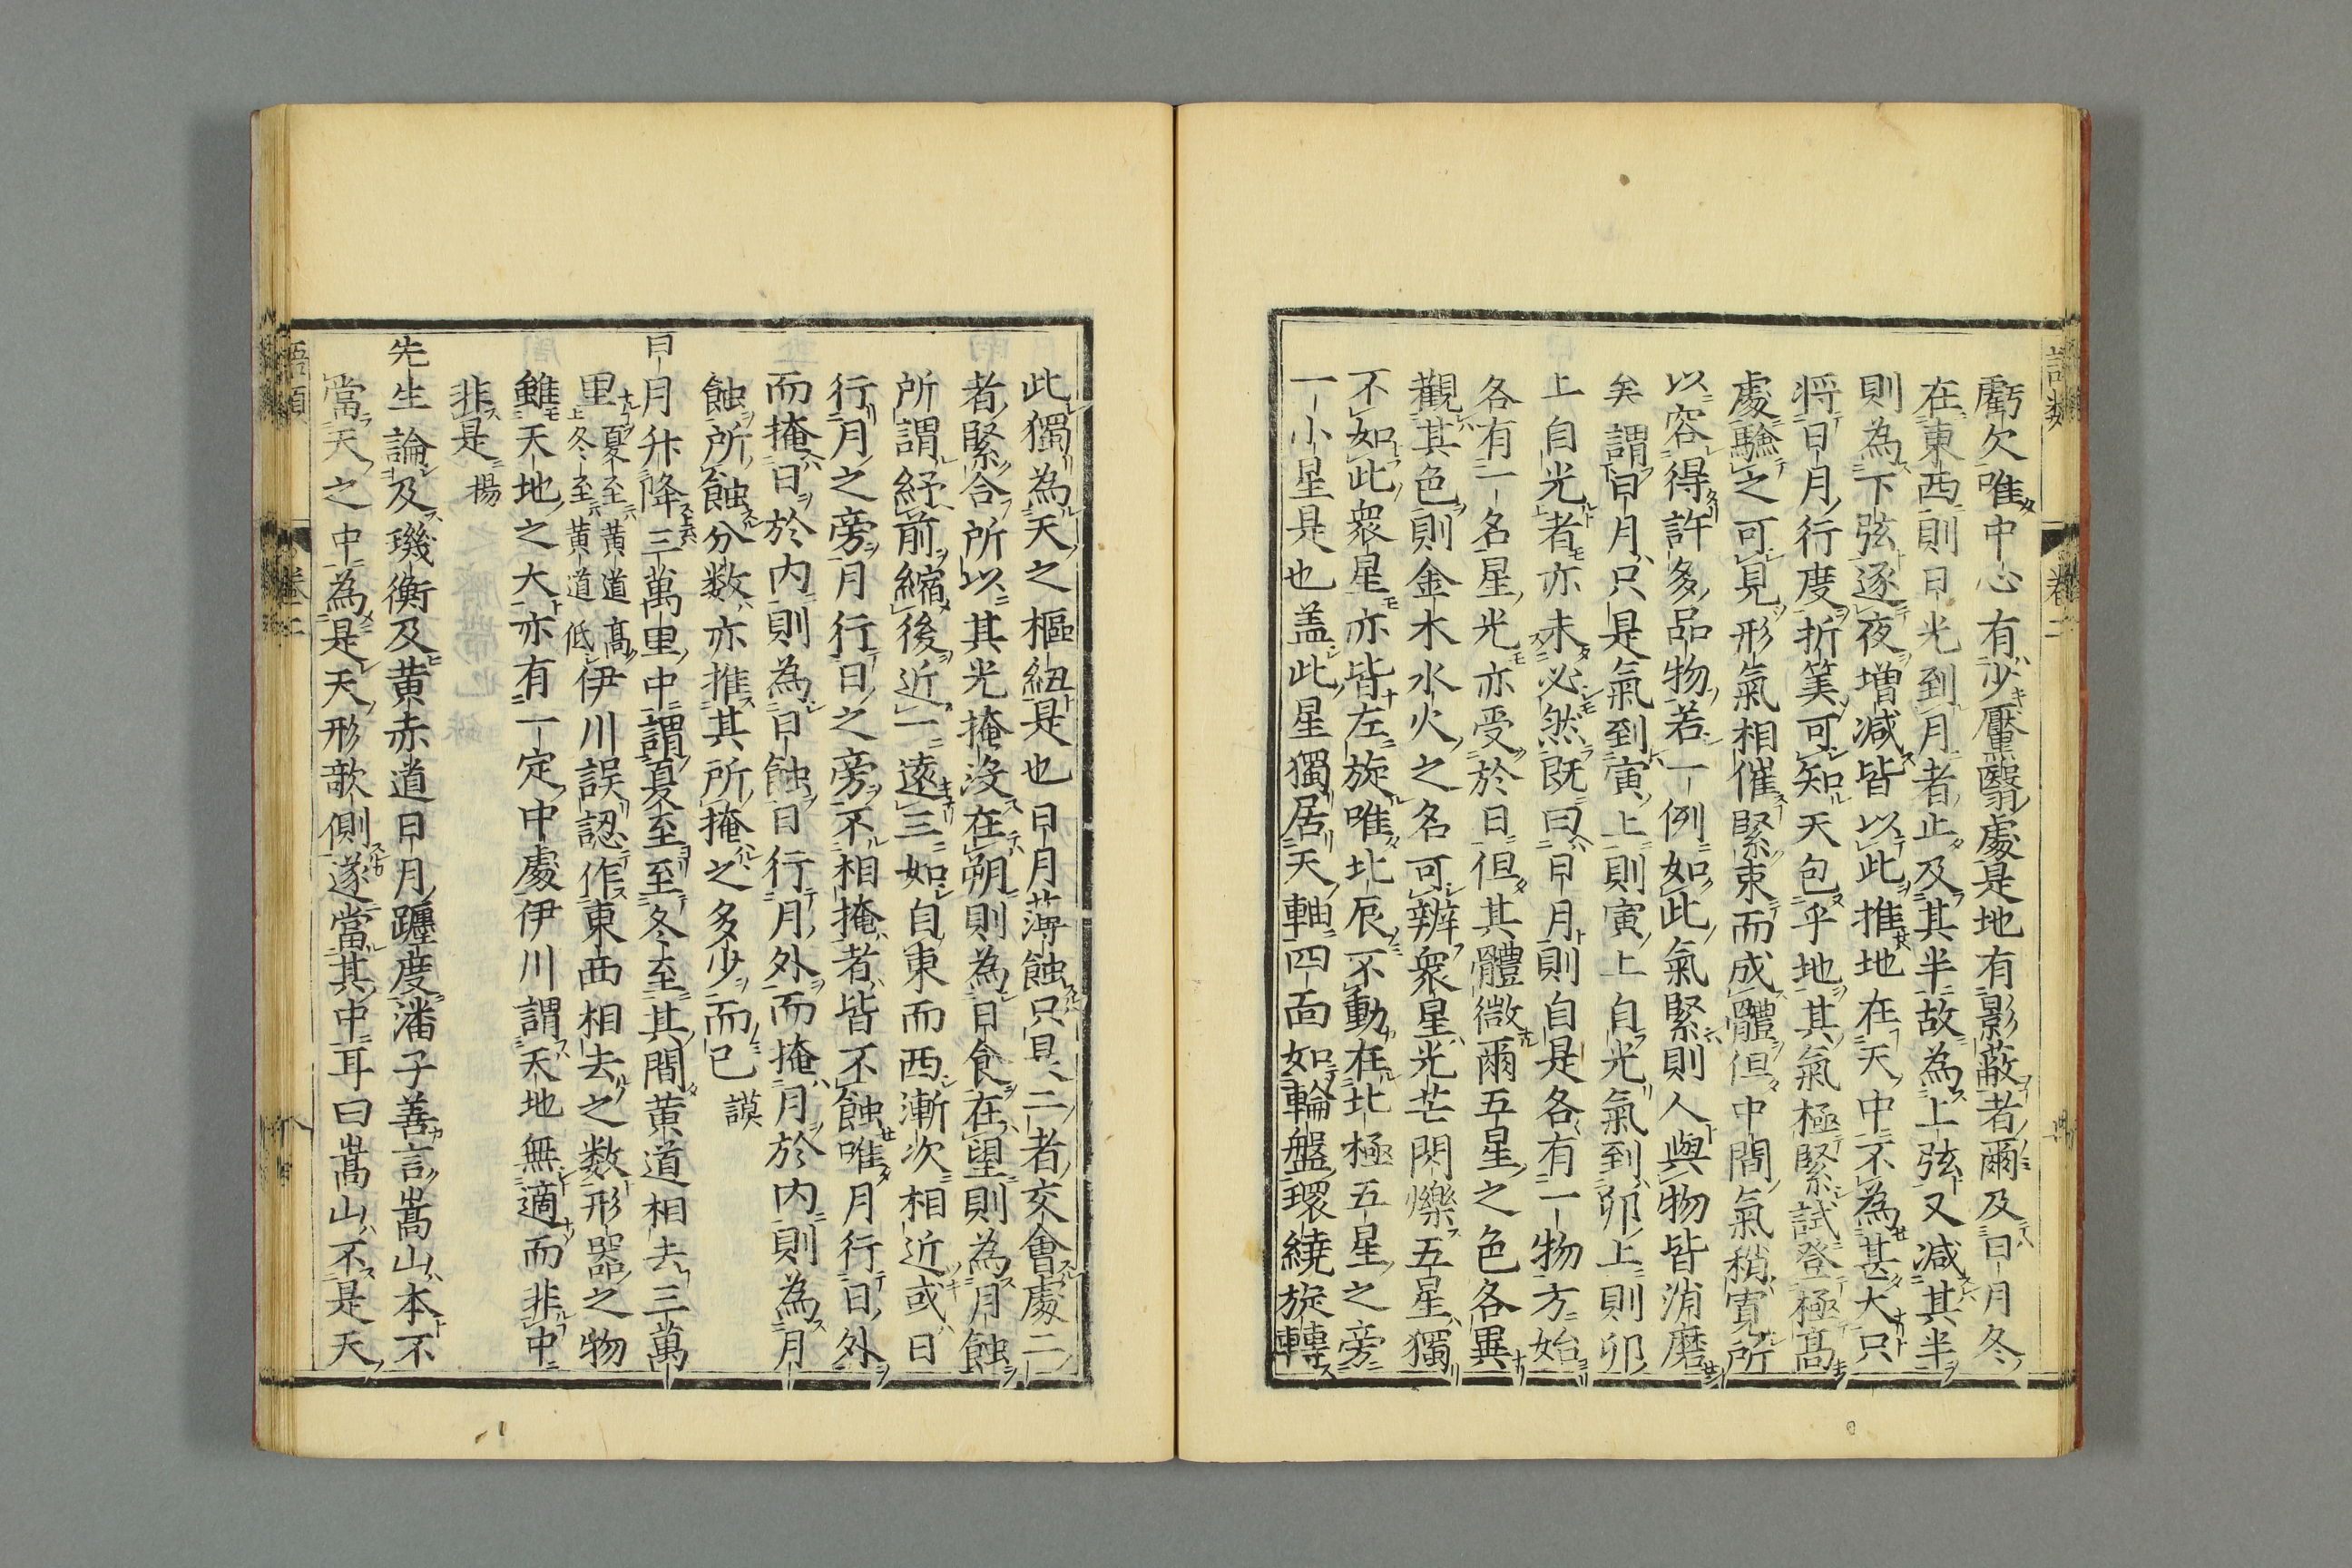 語類
卷二
虧欠唯中心有少黶翳處是地有影蔽者爾及日月冬
在東西則日光到月者止及其半故為上弦又減其半
則為下弦逐夜增減皆以此推地在天中不為甚大只
将日月行度折筭可知天包乎地其氣極緊試登極高
處驗之可見形氣相催緊束而成體但中間氣稍寬所
以容得許多品物若一例如此氣緊則人與物皆消磨
矣謂日月只是氣到寅上則寅上自光氣到卯上則卯
上自光者亦未必然既曰日月則自是各有一物方始
各有一名星光亦受於日但其體微爾五星之色各異
觀其色則金木水火之名可辨衆星光芒閃爍五星獨
不如此衆星亦皆左旋唯北辰不動在北極五星之旁
一小星是也盖此星獨居天軸四面如輪盤環繞旋轉
此獨為天之樞紐是也日月薄蝕只是二者交會處二
者緊合所以其光掩没在朔則為日食在望則為月蝕
所謂紓前縮後近一遠三如自東而西漸次相近或日
行月之旁月行日之旁不相掩者皆不蝕唯月行日外
而掩日於内則為日蝕日行月外而掩月於内則為月
蝕所蝕分数亦推其所掩之多少而已 謨
日月升降三萬里中謂夏至至冬至其間黄道相去三萬
里夏至黄道高
冬至黄道低伊川誤認作東西相去之数形器之物
雖天地之大亦有一定中處伊川謂天地無適而非中
非是 揚
先生論及璣衡及黄赤道日月躔度潘子善言嵩山本不
當天之中為是天形欹側遂當其中耳曰嵩山不是天
語類
卷二